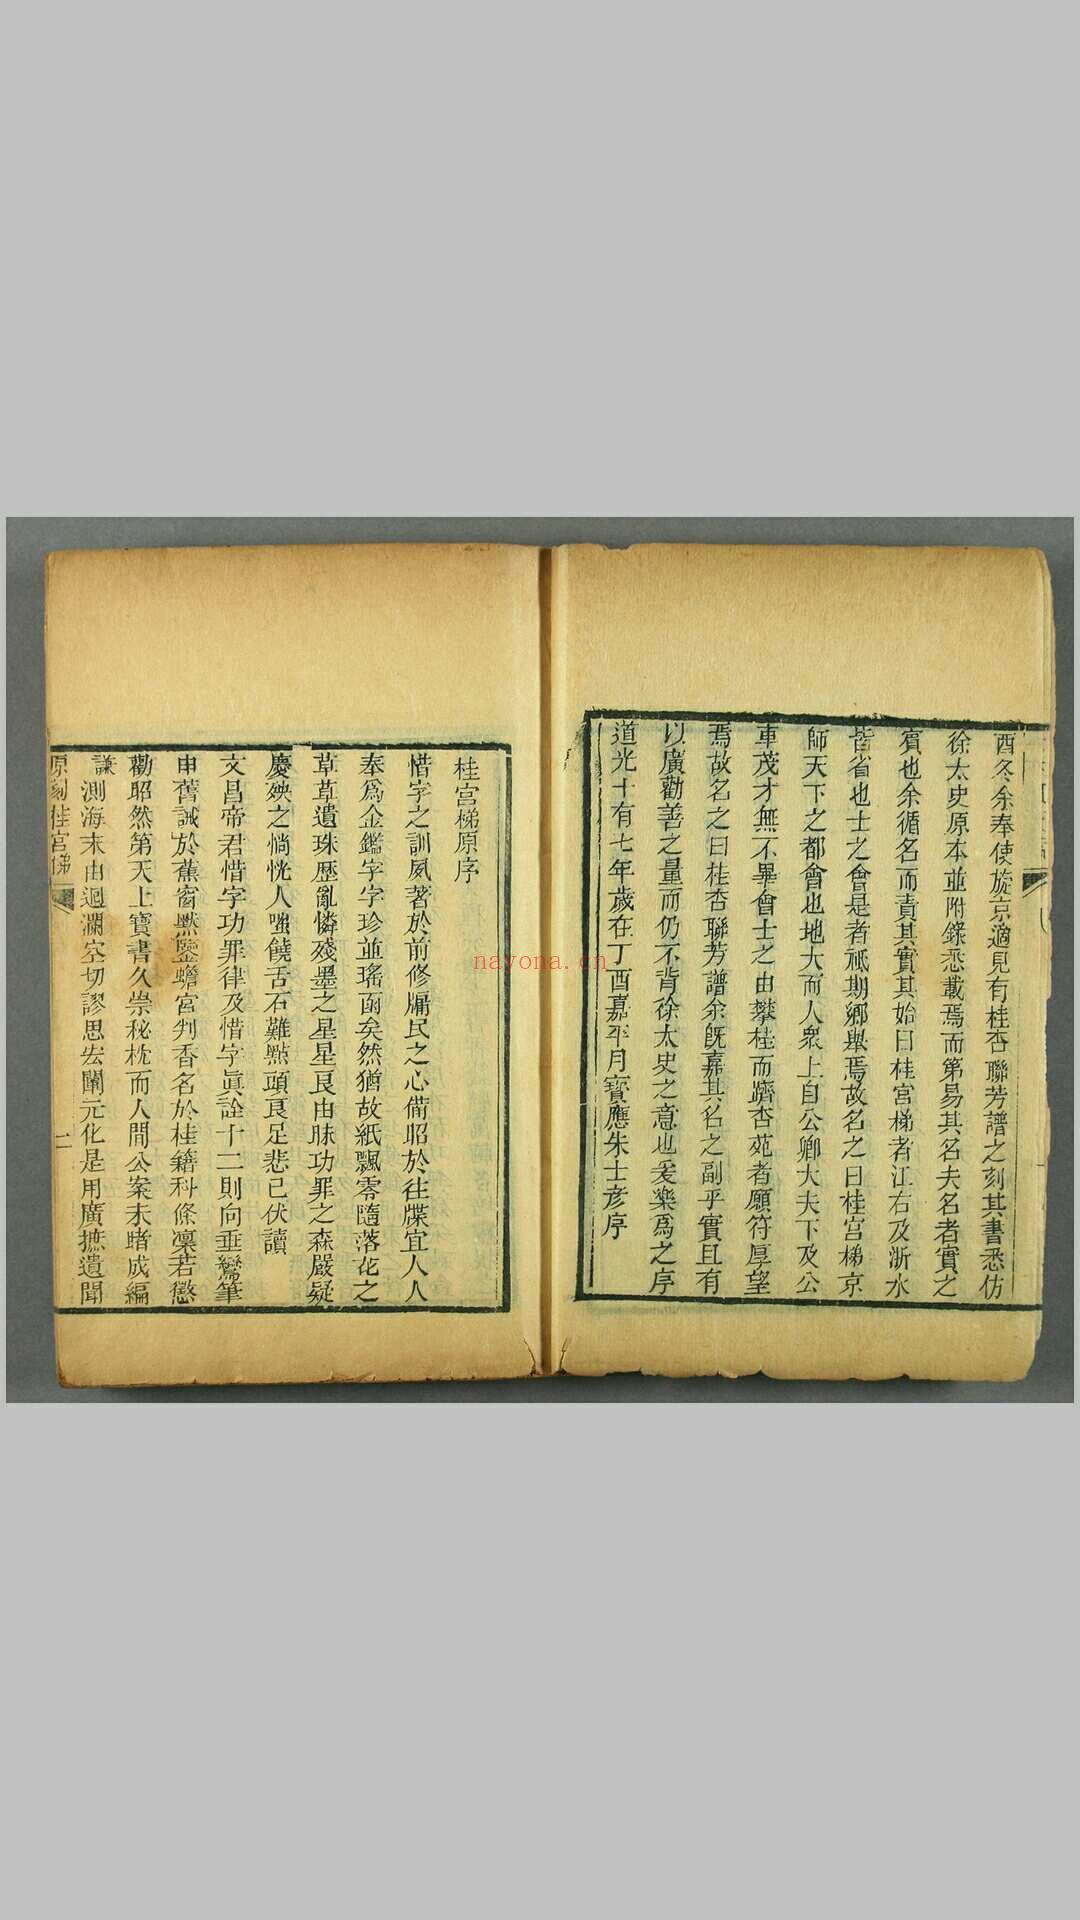 酉冬余奉使旋京適見有桂杏聯芳譜之刻其書悉仿
徐太史原本並附錄悉載焉而第易其名夫名者實之
賓也余循名而責其實其始曰桂宮梯者江右及浙水
皆省也士之會是者祗期鄉舉焉故名之曰桂宮梯京
師天下之都會也地大而人衆上自公卿大夫下及公
車茂才無不畢會士之由攀桂而躋杏苑者願符厚望
焉故名之曰桂杏聯芳譜余既嘉其名之副乎實且有
以廣勸善之量而仍不背徐太史之意也爰樂爲之序
道光十有七年歲在丁酉嘉平月寶應朱士彥序
桂宮梯原序
惜字之訓夙著於前修牖民之心備昭於往牒宜人人
奉爲金鑑字字珍並瑤函矣然猶故紙飄零隨落花之
草草遺珠歷亂憐殘墨之星星良由昧功罪之森嚴疑
慶殃之惝恍人嗤饒舌石難點頭良足悲已伏讀
文昌帝君惜字功罪律及惜字眞詮十二則向垂鸞筆
申舊誡於蕉窗黙鑒蟾宮判香名於桂籍科條凜若懲
勸昭然第天上寶書久崇秘枕而人間公案未睹成編
謙測海未由迴瀾空切謬思宏闡元化是用廣摭遺聞
原刻桂宮梯
二
nayona.cn